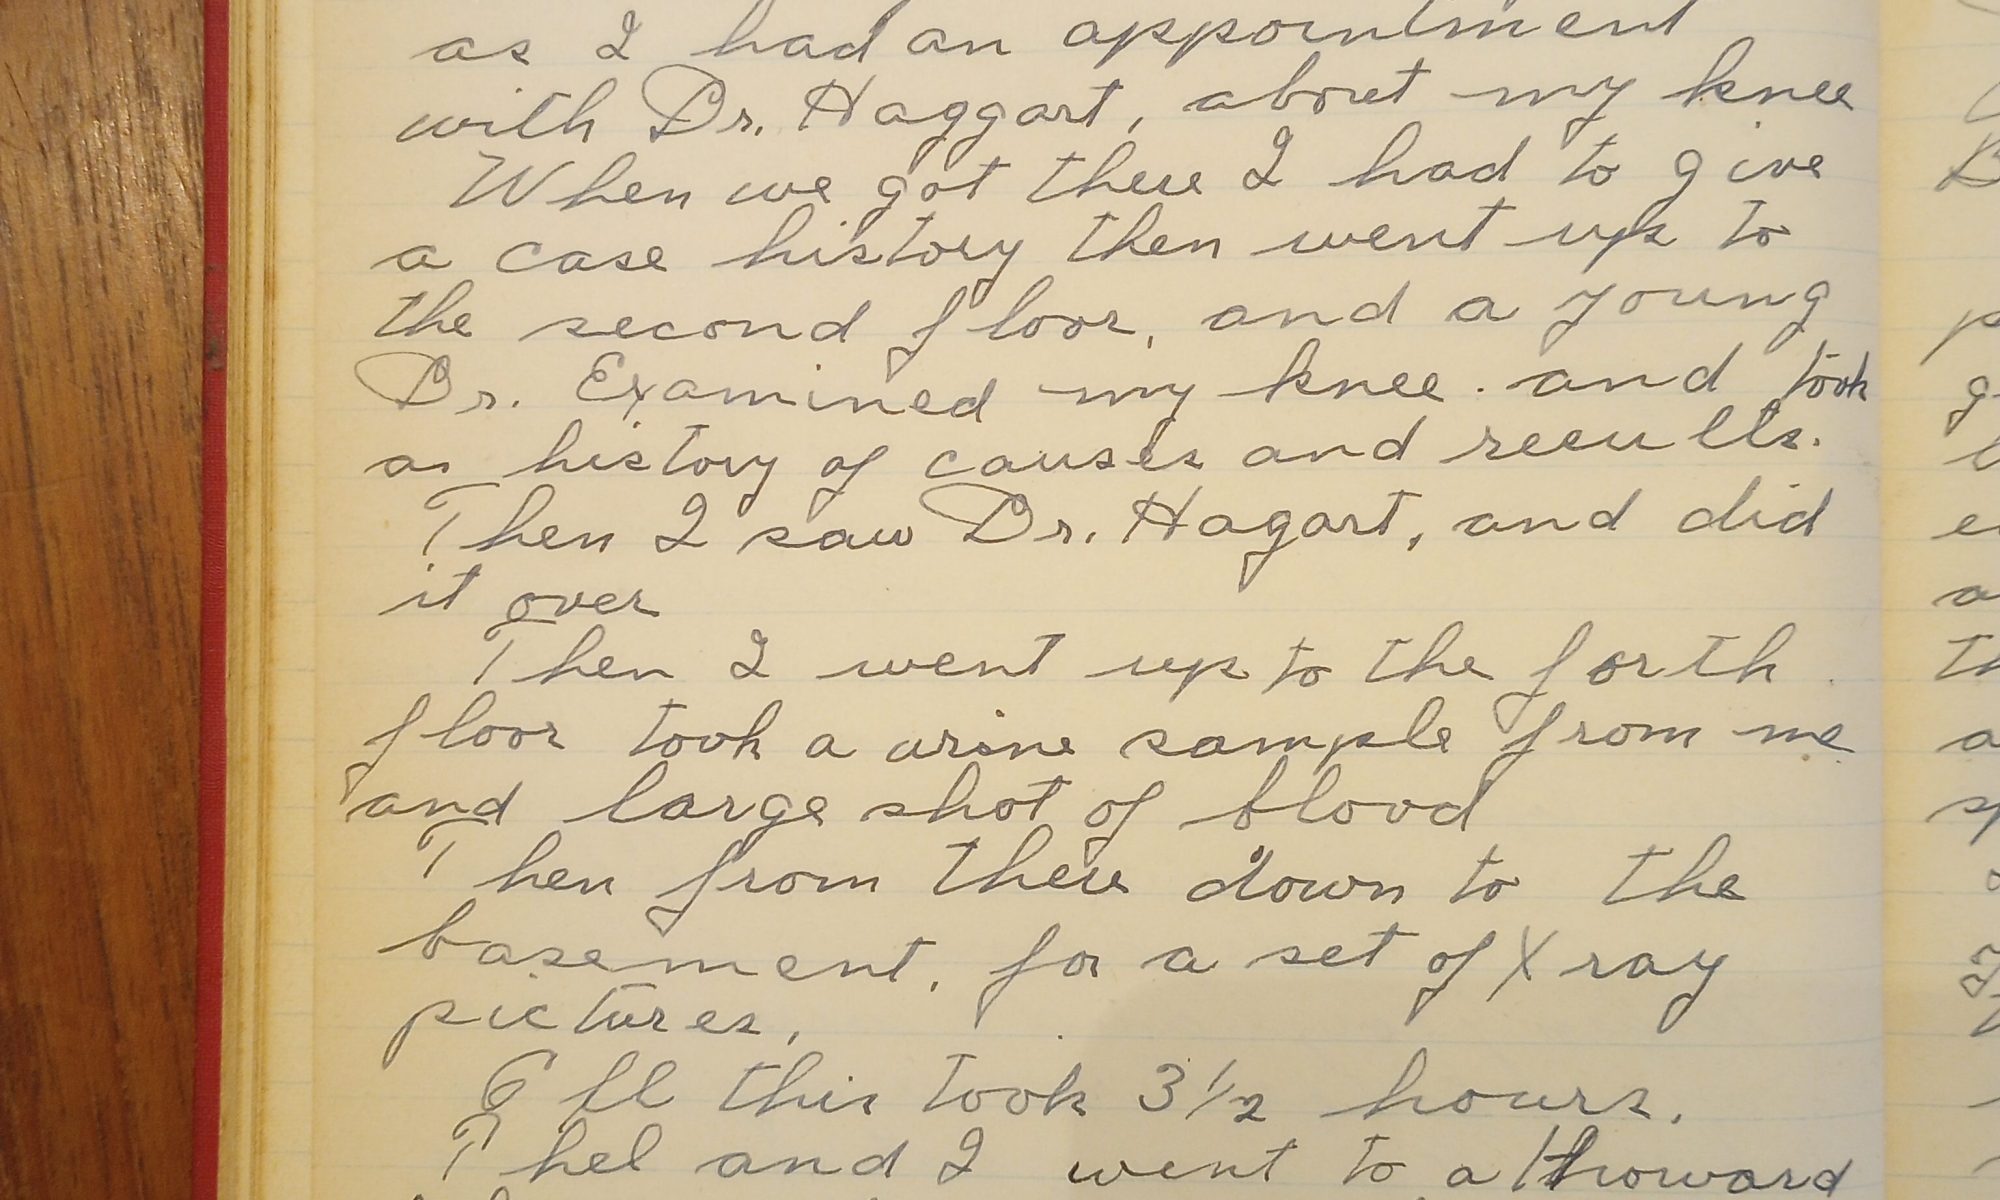 as I had an appointment
with Dr. Haggart, about my knee
When we got there I had to give
a case history then went up to
the second floor, and a young
Dr. Examined my knee. and took
a history of causes and reeults.
Then I saw Dr. Hagart, and did
it over
Then I went up to the forth
floor took a urine sample from me
and large shot of blood
Then from there down to the
basement, for a set of X ray
pictures,
All this took 3 1/2 hours.
Thel and I went to a Howard